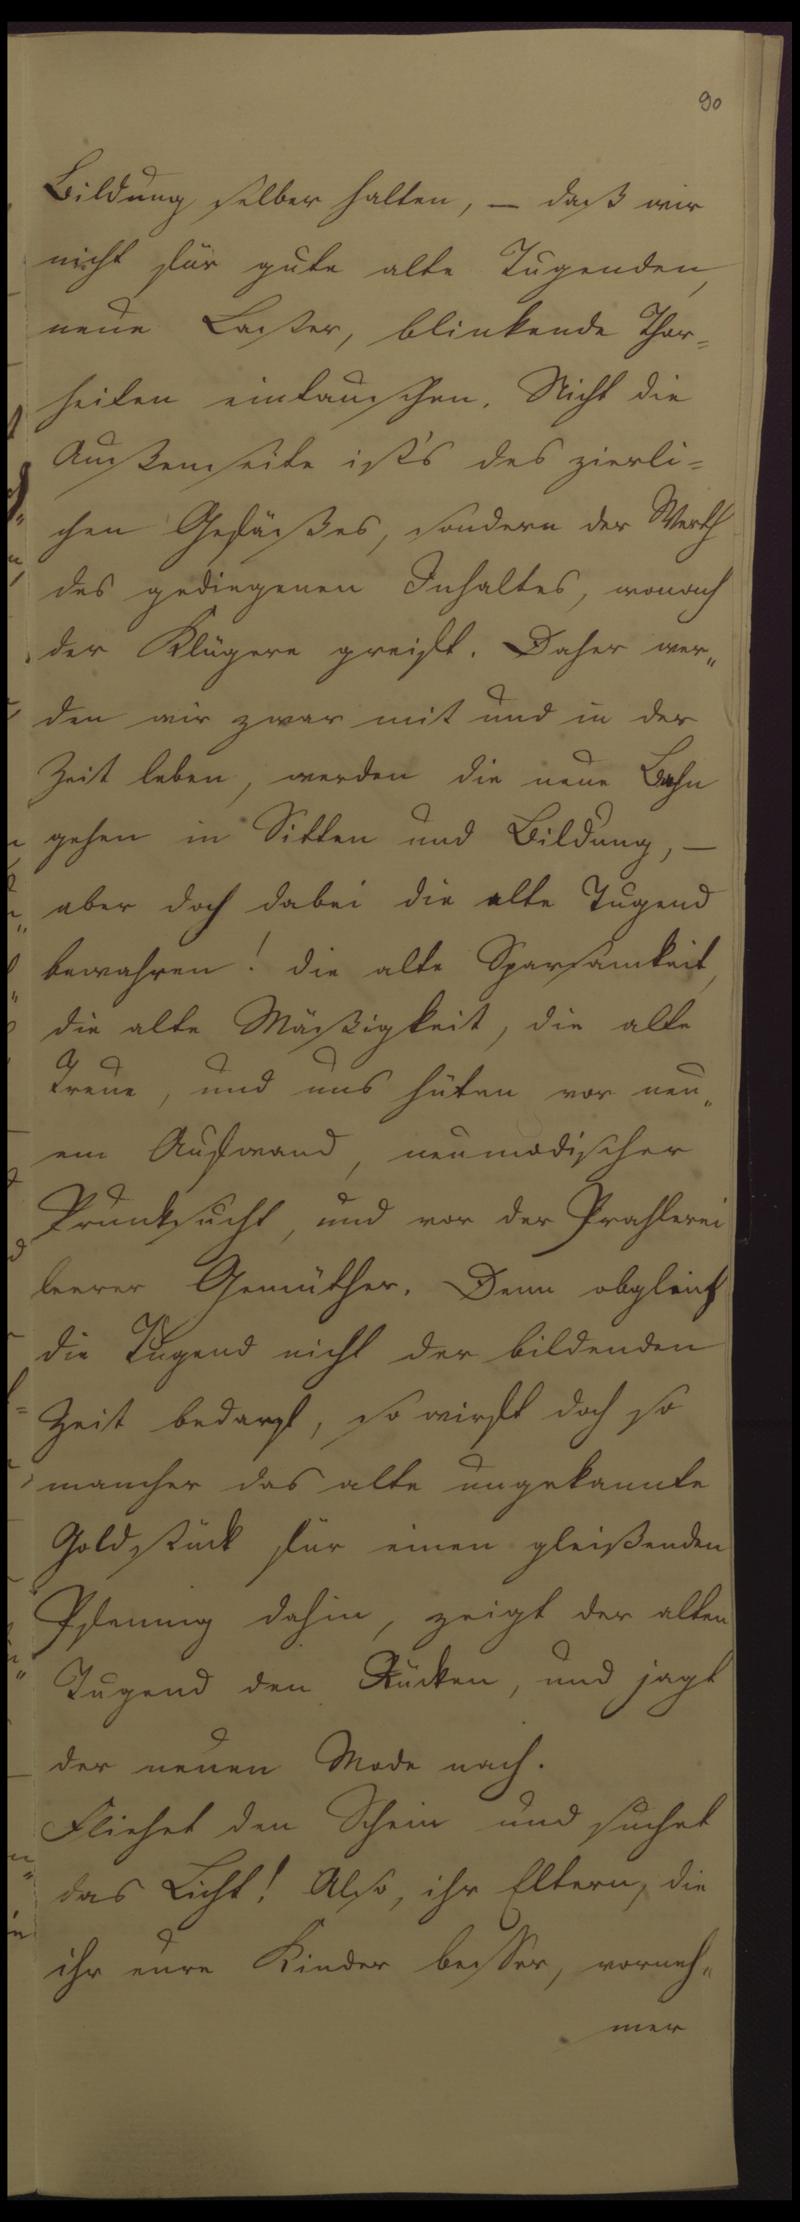 90
Bildung selber halten, — daß wir
nicht für gute alte Tugenden,
neue Laster, blinkende Thor=
heiten eintauschen. Nicht die
Außenseite ist's des zierli=
chen Gefäßes, sondern der Werth
des gediegenen Inhaltes, wonach
der Klügere greift. Daher wer„
den wir zwar mit und in der
Zeit leben, werden die neue Bahn
gehen in Sitten und Bildung, —
aber doch dabei die alte Tugend
bewahren! die alte Sparsamkeit,
die alte Mäßigkeit, die alte
Treue, und uns hüten vor neu„
em Aufwand, neumodischer
Prunksucht, und vor der Prahlerei
leerer Gemüther. Denn obgleich
die Tugend nicht der bildenden
Zeit bedarf, so wirft doch so
mancher das alte ungekannte
Goldstück für einen gleißenden
Pfennig dahin, zeigt der alten
Tugend den Rücken, und jagt
der neuen Mode nach.
Fliehet den Schein und suchet
das Licht! Also, ihr Eltern, die
ihr eure Kinder besser, vorneh„
mer